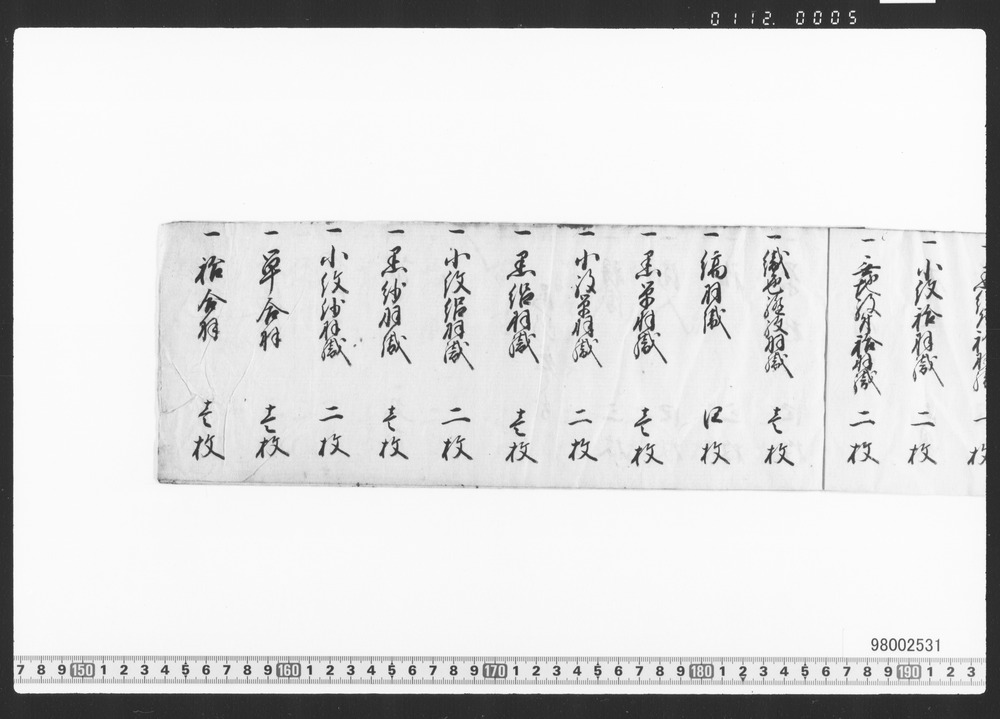 0112. 0005
一 小紋袷羽織 二枚
二枚
羽織 壱枚
一 縞羽織 四枚
一 黒単羽織 壱枚
一 小紋単羽織 二枚
一 黒絽羽織 壱枚
一 小紋絽羽織 二枚
一 黒紗羽織 壱枚
一 小紋紗羽織 二枚
一 単合羽 壱枚
一 袷合羽 壱枚
98002531
7 8 9 150 1 2 3 4 5 6 7 8 9 160 1 2 3 4 5 6 7 8 9 170 1 2 3 4 5 6 7 8 9 180 1 2 3 4 5 6 7 8 9 190 1 2 3